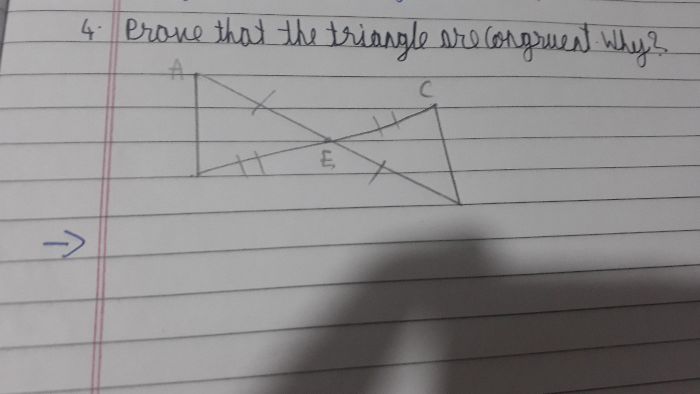 4. Prove that the triangle are congruent. Why?
A
C
E